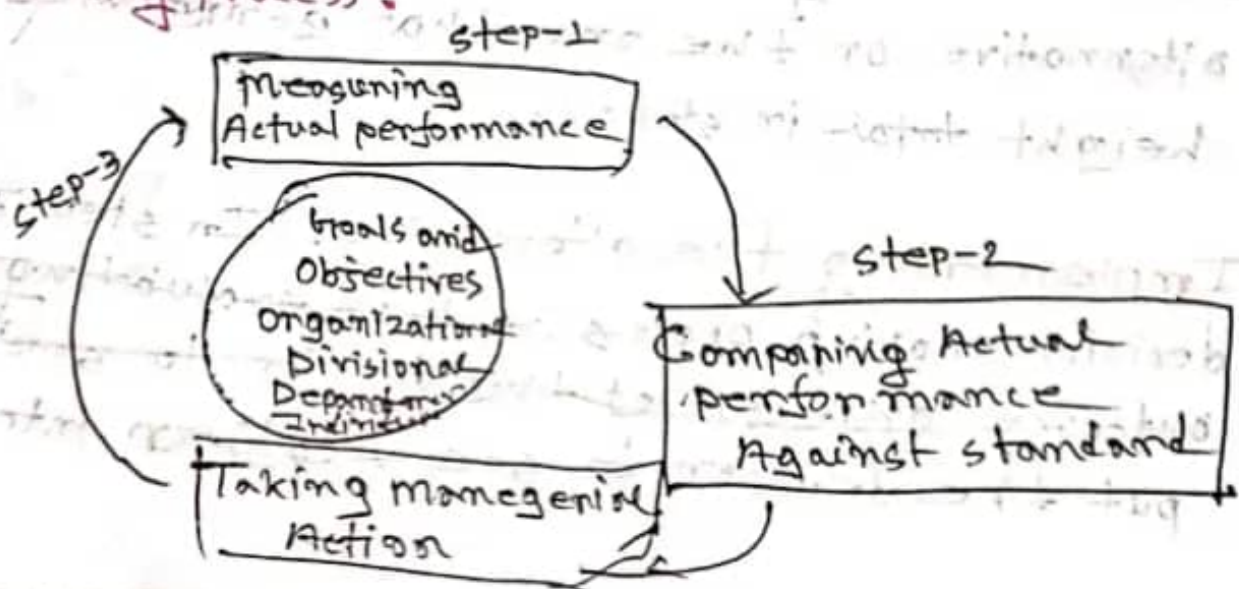 step-1
Measuring
Actual performance
step-3
Goals and
Objectives
Organizational
Divisional
step-2
Comparing Actual
performance
Against standard
Taking managerial
Action